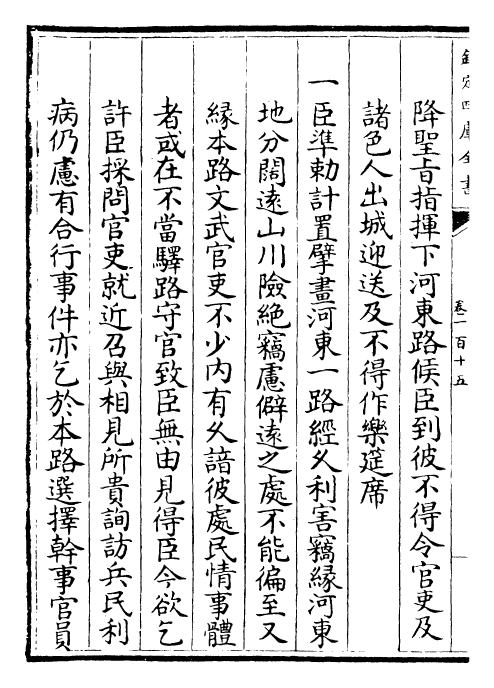 欽定四庫全書
卷二百十五
降聖旨指揮下河東路候臣到彼不得令官吏及
諸色人出城迎送及不得作樂筵席
一臣準勅計置擘畫河東一路經久利害竊緣河東
地分闊遠山川險絶竊慮僻遠之處不能徧至又
緣本路文武官吏不少内有久諳彼處民情事體
者或在不當驛路守官致臣無由見得臣今欲乞
許臣採問官吏就近召與相見所貴詢訪兵民利
病仍慮有合行事件亦乞於本路選擇幹事官員